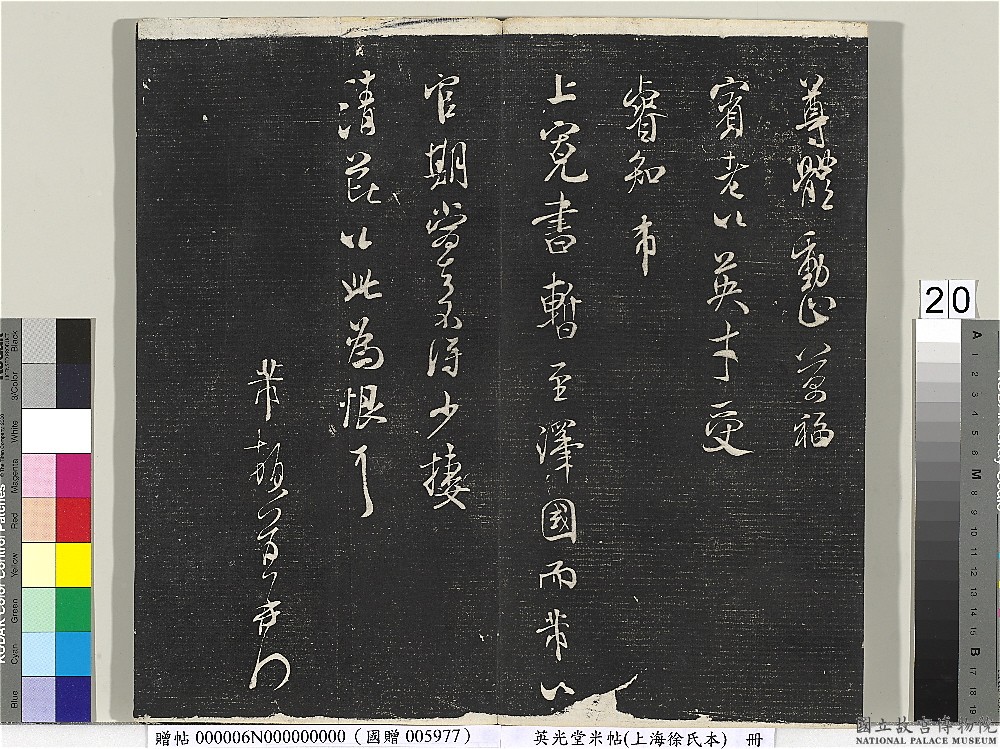 尊體動止萬福
賓老以英才受
睿知
上寬書暫至澤國而芾以
官期當不得少捿
清芘以此為恨
芾頓首
20
贈帖 000006N000000000（國贈 005977）
英光堂米帖(上海徐氏本) 冊
國立故宮博物院
NATIONAL PALACE MUSEUM
KODAK Color Control Patches
Blue Cyan Green Yellow Red Magenta White 3/Color Black
A 1 2 3 4 5 6 M 8 9 10 11 12 13 14 15 B 17 18 19